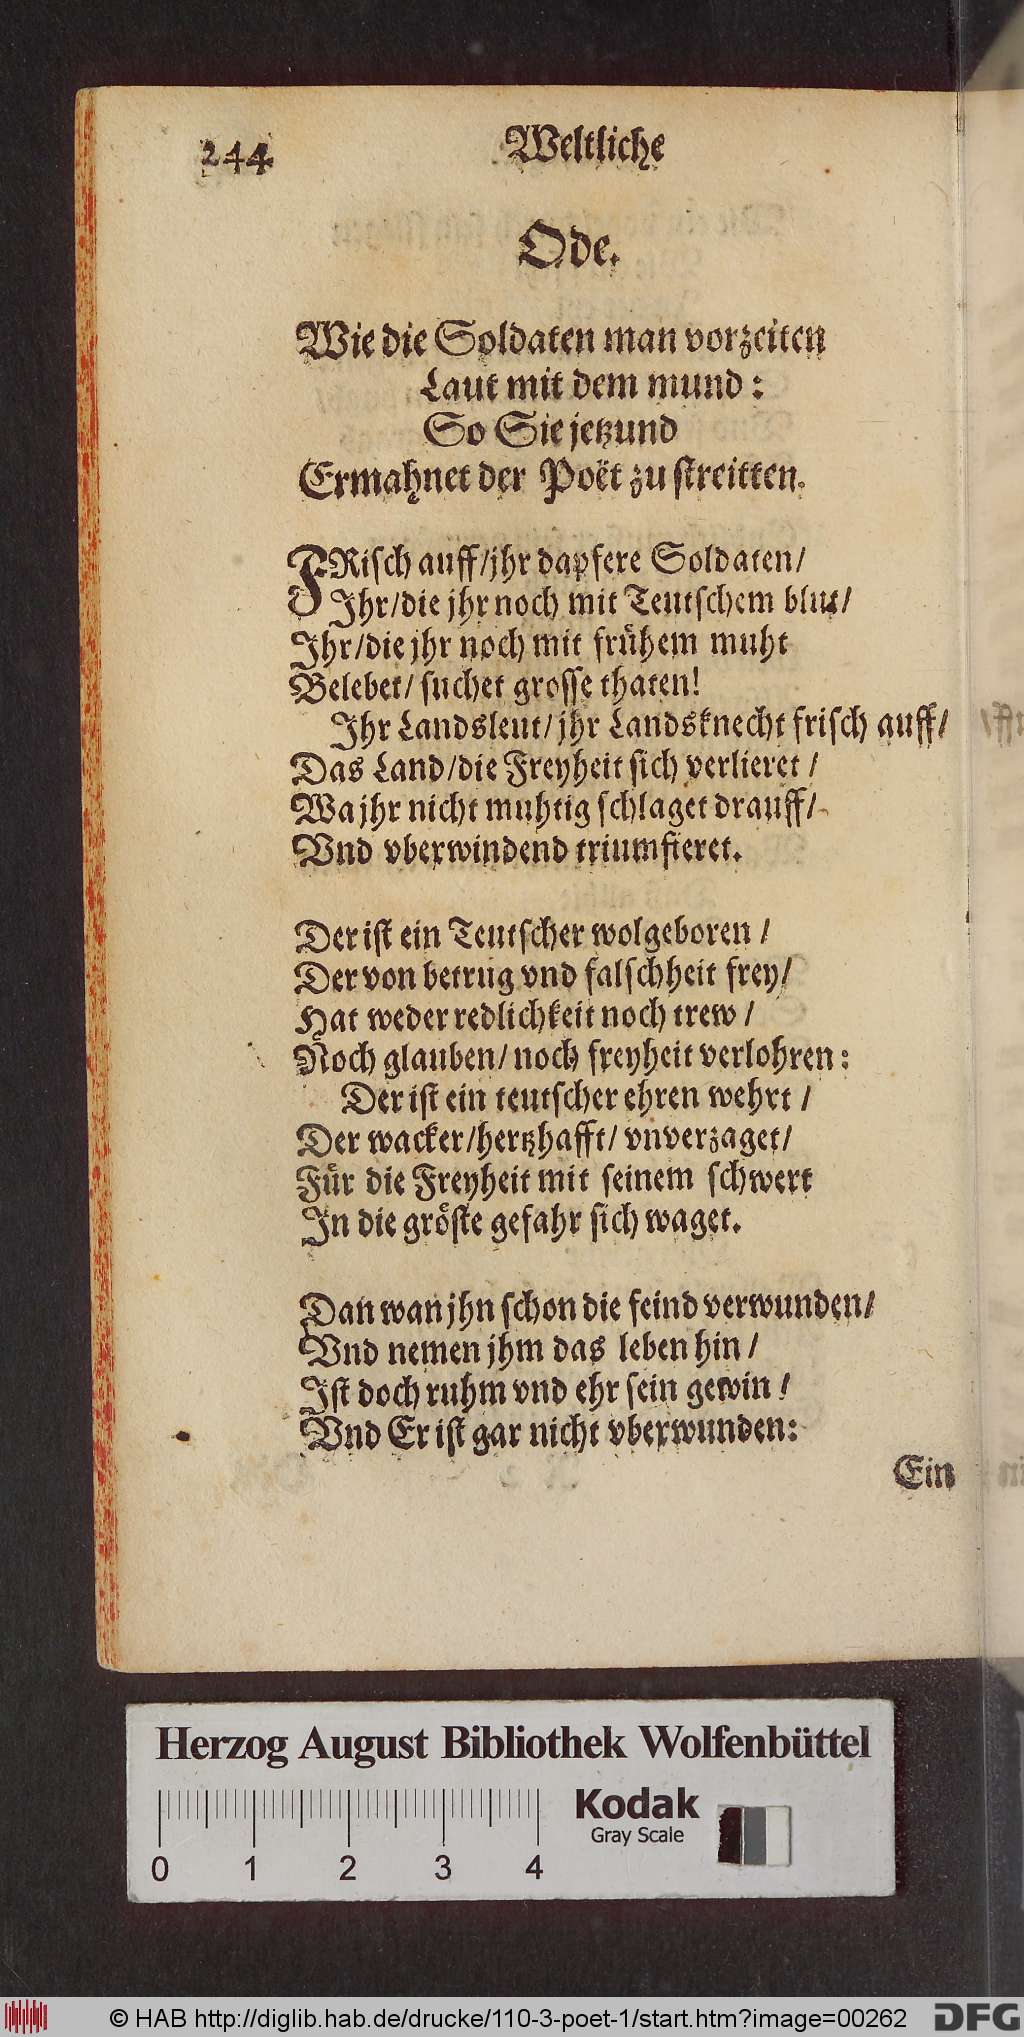 244 Weltliche
Ode.
Wie die Soldaten man vorzeiten
Laut mit dem mund:
So Sie jetzund
Ermahnet der Poët zu streitten.
FRisch auff/jhr dapfere Soldaten/
Ihr/die jhr noch mit Teutschem blut/
Ihr/die jhr noch mit frühem muht
Belebet/ suchet grosse thaten!
Ihr Landsleut/ jhr Landsknecht frisch auff/
Das Land/die Freyheit sich verlieret /
Wa jhr nicht muhtig schlaget drauff/
Vnd vberwindend triumfieret.
Der ist ein Teutscher wolgeboren /
Der von betrug vnd falschheit frey/
Hat weder redlichkeit noch trew /
Noch glauben/ noch freyheit verlohren:
Der ist ein teutscher ehren wehrt /
Der wacker/hertzhafft/ vnverzaget/
Für die Freyheit mit seinem schwert
In die gröste gefahr sich waget.
Dan wan jhn schon die feind verwunden/
Vnd nemen jhm das leben hin /
Ist doch ruhm vnd ehr sein gewin /
Vnd Er ist gar nicht vberwunden:
Ein
Herzog August Bibliothek Wolfenbüttel
Kodak
Gray Scale
0 1 2 3 4
© HAB http://diglib.hab.de/drucke/110-3-poet-1/start.htm?image=00262 DFG